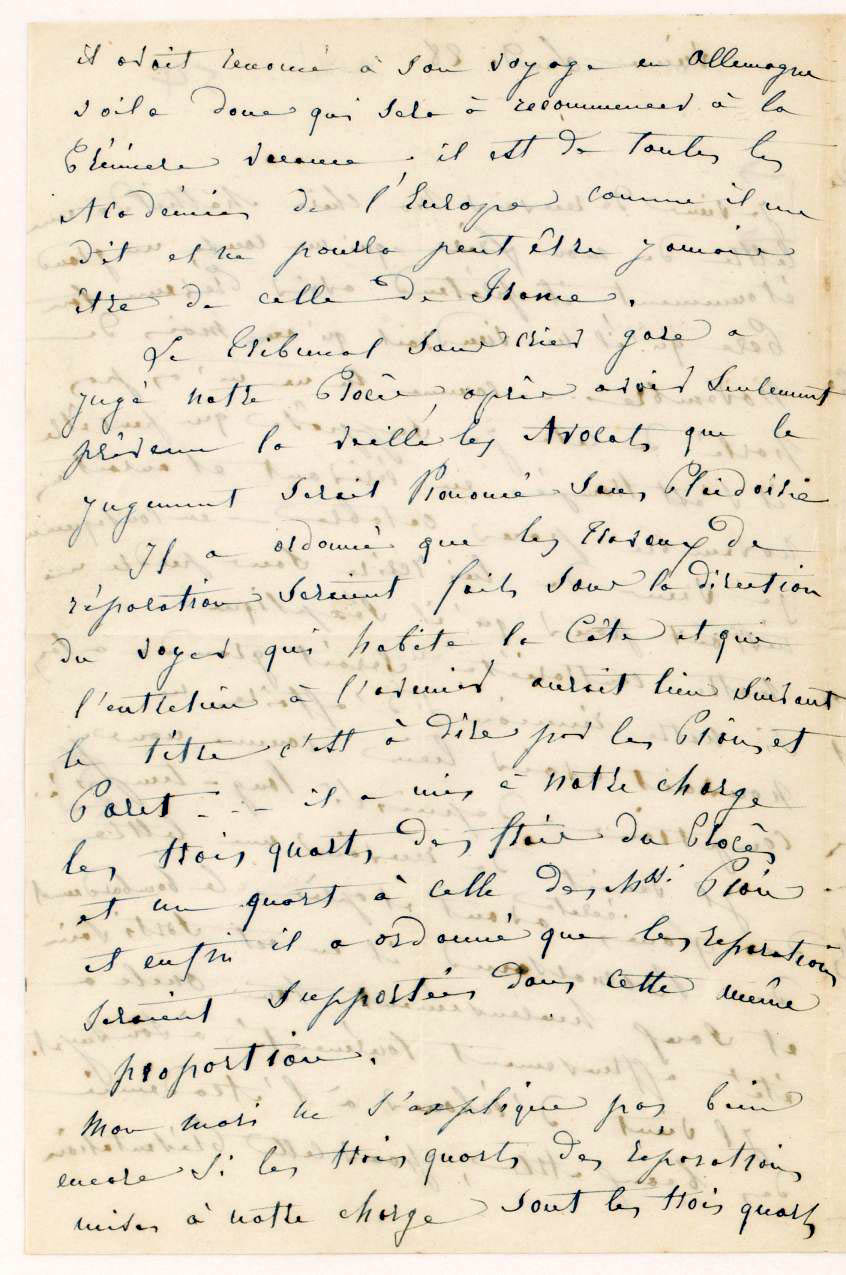 il avait renoncé à son voyage en Allemagne
voila donc qui sera à recommencer à la
Première vacance. il est de toutes les
Académies de l'Europe comme il me
dit et ne pourra peut être jamais
être de celle de Rome.
Le Tribunal sans crier gare a
jugé notre Procès, après avoir seulement
prévenu la veille les Avocats que le
jugement serait Prononcé sans Plaidoirie
Il a ordonné que les travaux de
réparation seraient faits sous la direction
du voyer qui habite la Côte et que
l'entretien à l'avenir aurait lieu suivant
le titre c'est à dire par les Prón et
Paret - - - il a mis à notre charge
les trois quarts des frais du Procès
et un quart à celle des Prón
et enfin il a ordonné que les reparations
seraient supportées dans cette même
proportion.
Mon mari ne s'explique pas bien
encore si les trois quarts des réparations
mises à notre charge sont les trois quarts